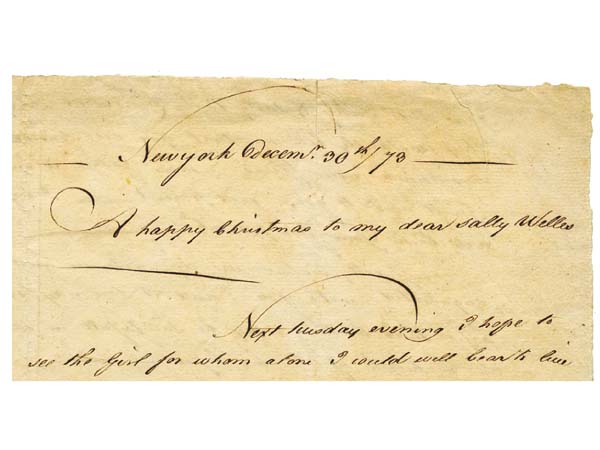 Newyork Decemr. 30th/73
A happy Christmas to my dear Sally Welles
Next tuesday evening I hope to
see the Girl for whom alone I could well bear to live